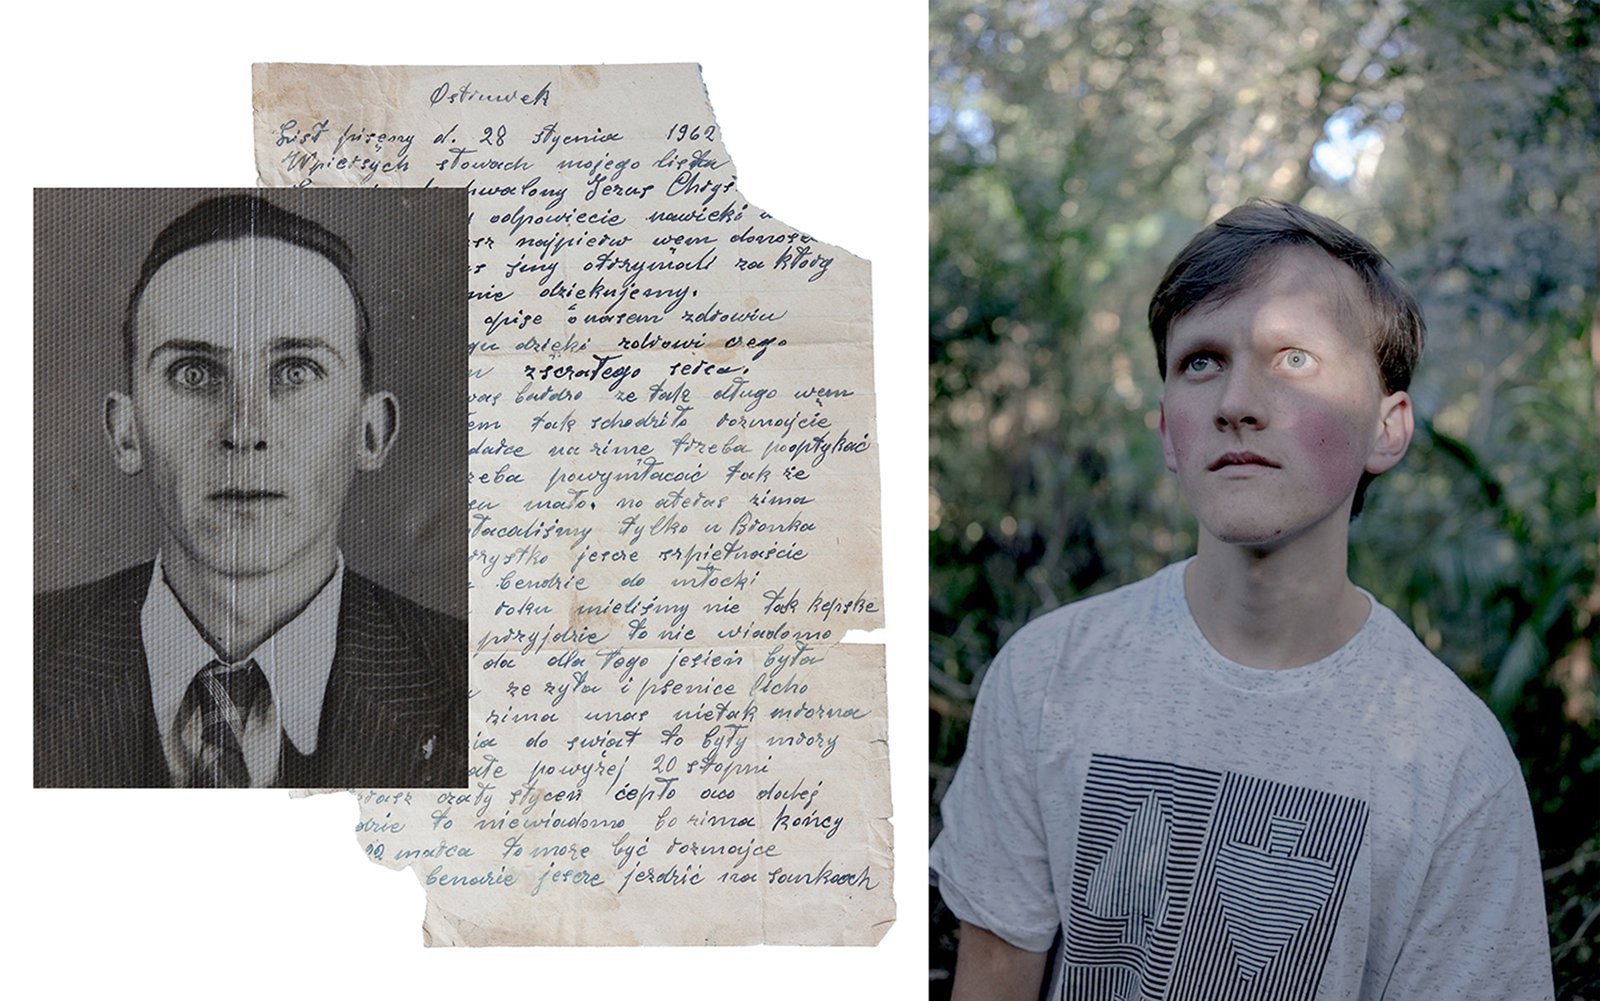 Ostruwek
List pisęny d. 28 stycnia 1962
W piersych słowach mojego lista
hwalony Jezus Chrys
odpowiecie nawieki
najpierw wem donosze
śmy otrzymali za który
nie dziekujemy.
opise o nasem zdrowiu
dzięki zdrowi czego
zścratego serca.
was bardzo ze tak długo wem
tak schodziło rozmajcie
na zime trzeba popłykać
powymłacać tak że
mało. no ateras zima
tylko u Bronka
jesce szpietnaście
bendzie do młocki
roku mieliśmy nie tak kepske
przyjdzie to nie wiadomo
dla tego jesień była
ze zyta i psenice licho
zima unas nietak mrozna
do świat to były mrozy
ale powyżej 20 stopni
cały styceń ciepło aco dalej
to niewiadomo bo zima końcy
22 marca to moze być rozmajce
bendzie jesce jezdzić na sankach